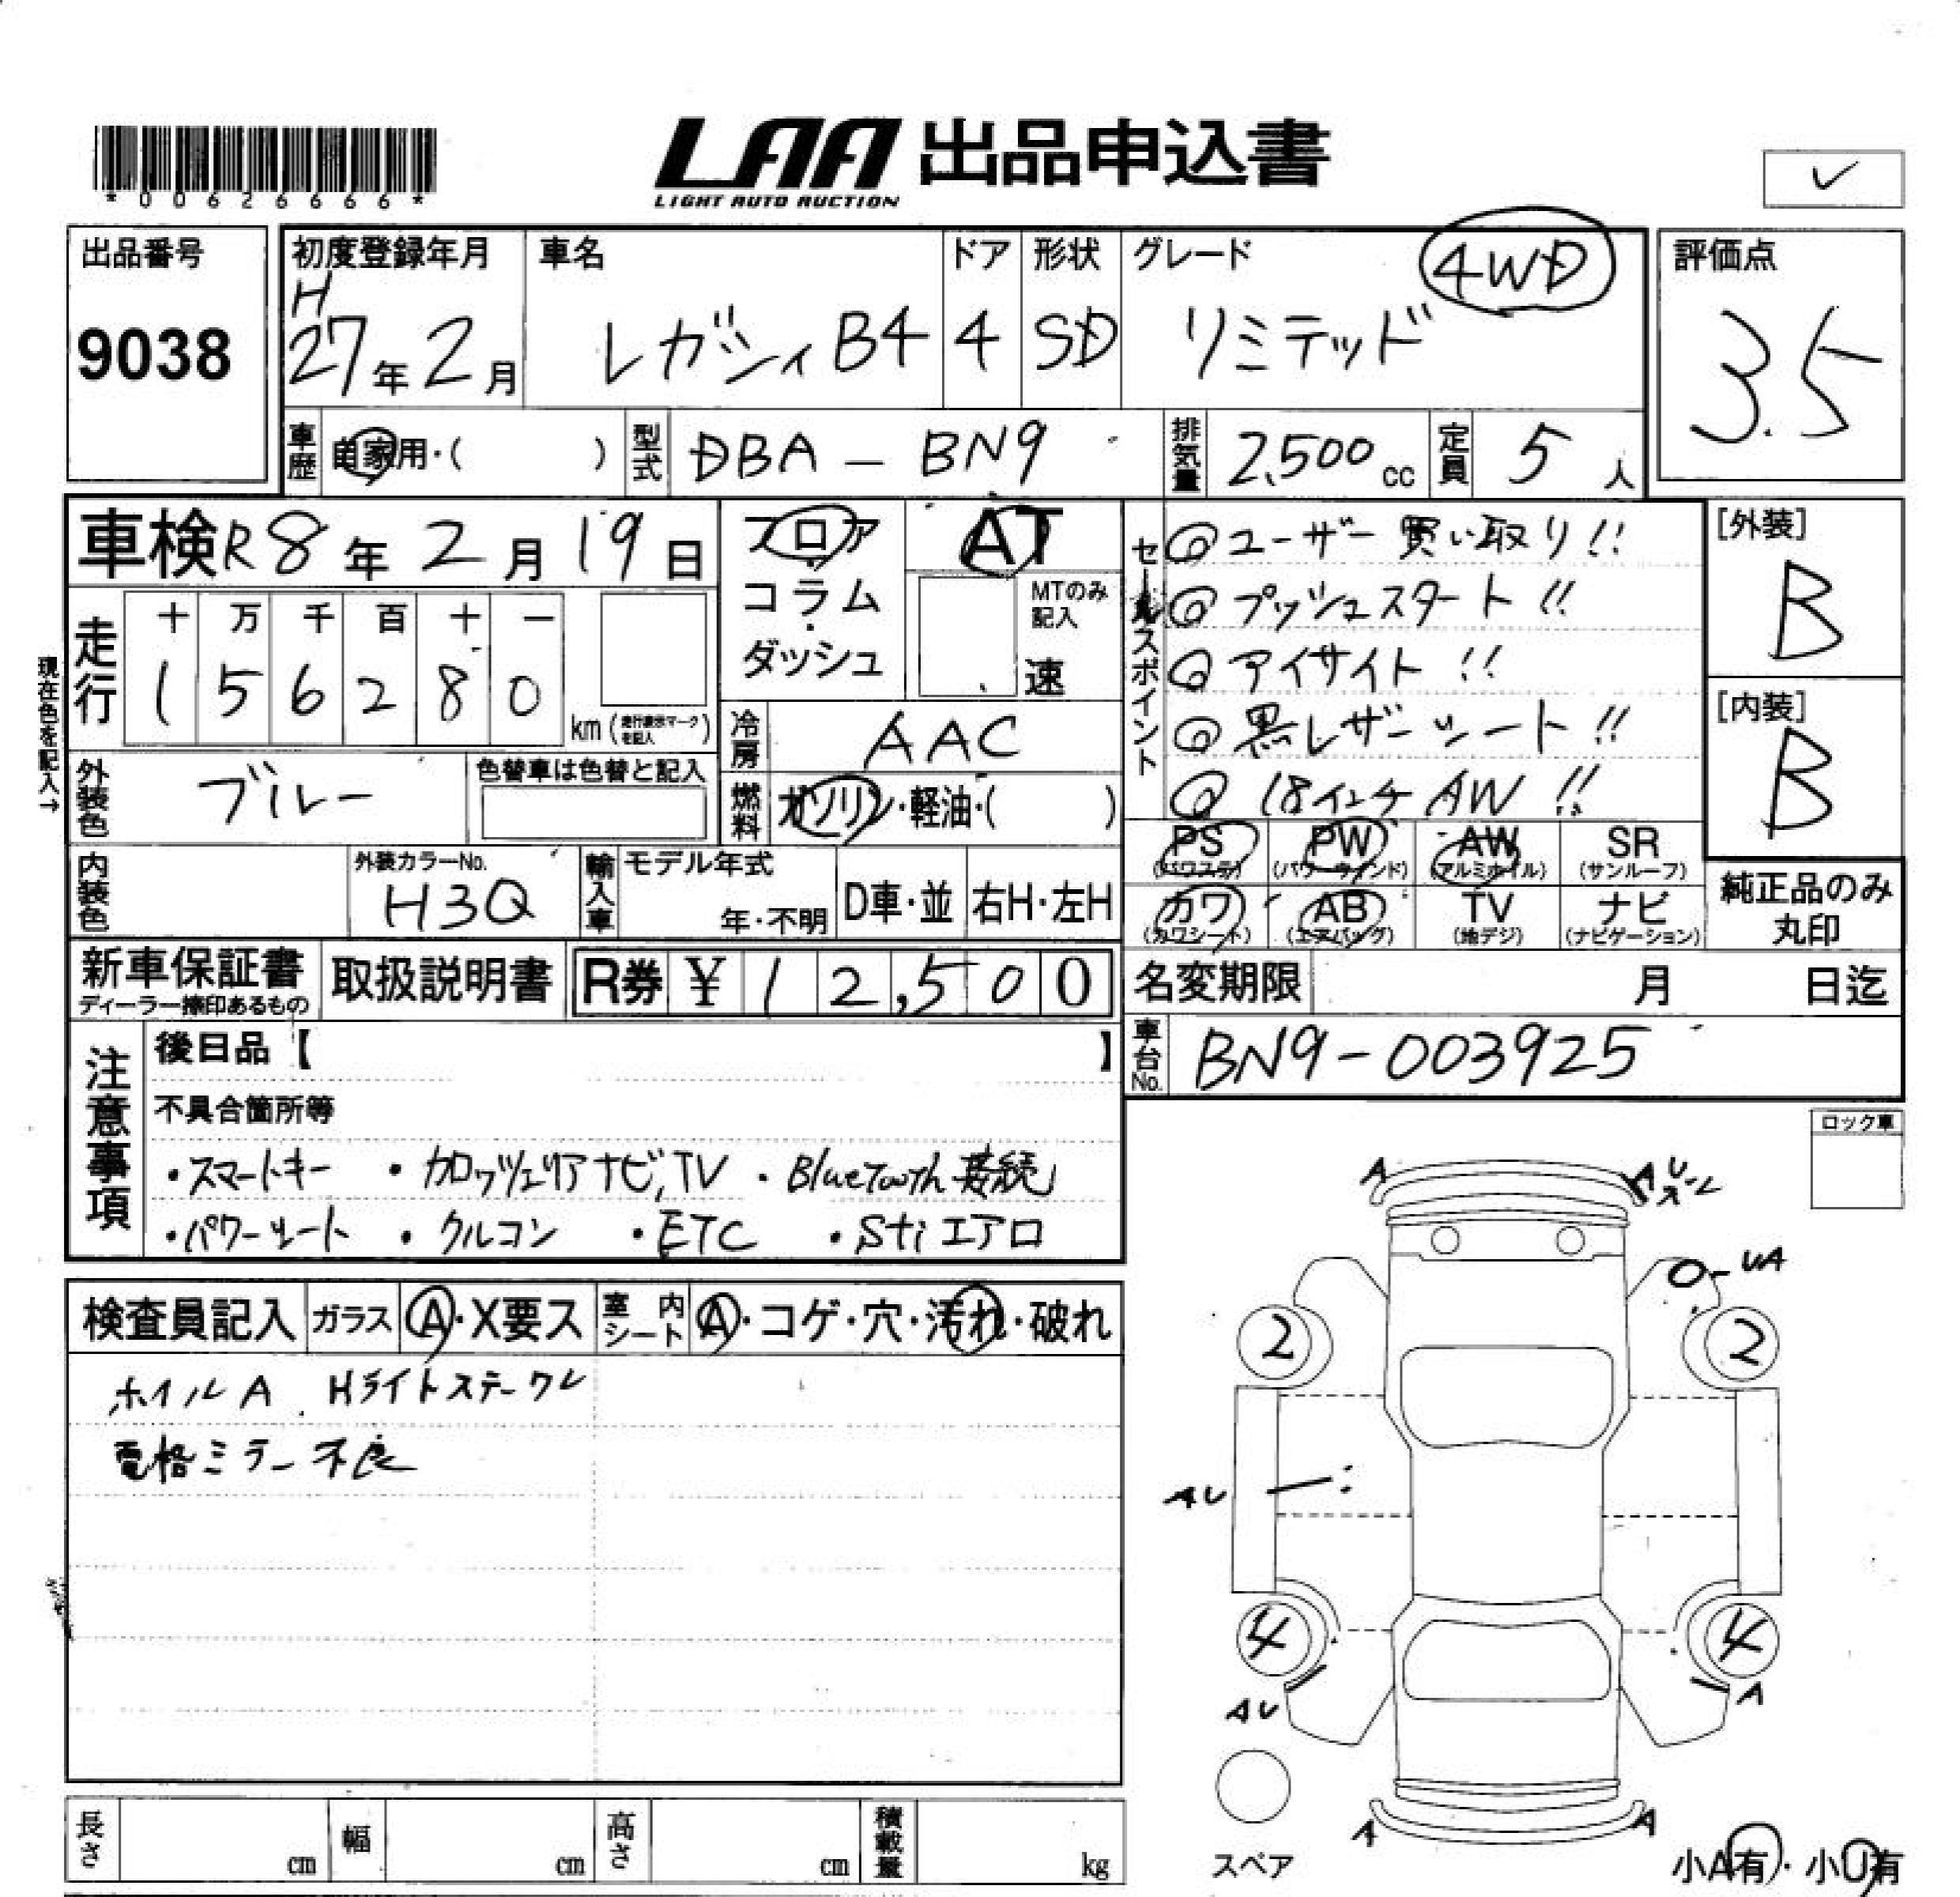 *00626666*
LAA 出品申込書
LIGHT AUTO AUCTION
✓
出品番号
9038
初度登録年月
H
27年2月
車名
レガシィB4
ドア
4
形状
SD
グレード
4WD
リミテッド
評価点
3.5
車歴
自家用・( )
型式
DBA - BN9
排気量
2,500cc
定員
5人
車検R8年2月19日
フロア
コラム
ダッシュ
AT
MTのみ
記入
速
セールスポイント
◎ユーザー買い取り!!
◎プッシュスタート!!
◎アイサイト!!
◎黒レザーシート!!
◎18インチAW!!
[外装]
B
[内装]
B
現在色を記入→
走行
十 万 千 百 十 一
1 5 6 2 8 0
km(走行表示マークを記入)
冷房
AAC
外装色
ブルー
色替車は色替と記入
燃料
ガソリン・軽油・( )
PS
(パワステ)
PW
(パワーウインド)
AW
(アルミホイル)
SR
(サンルーフ)
カワ
(カワシート)
AB
(エアバッグ)
TV
(地デジ)
ナビ
(ナビゲーション)
純正品のみ
丸印
内装色
外装カラーNo.
H3Q
輸入車
モデル年式
年・不明
D車・並
右H・左H
新車保証書
ディーラー捺印あるもの
取扱説明書
R券 ¥ 12,500
名変期限
月 日迄
車台No.
BN9-003925
注意事項
後日品【 】
不具合箇所等
・スマートキー ・カロッツェリアナビ,TV ・Bluetooth接続
・パワーシート ・クルコン ・ETC ・Stiエアロ
ロック車
検査員記入
ガラス
A・X要ス
室内シート
A・コゲ・穴・汚れ・破れ
ホイルA Hライトステークレ
電格ミラー不良
A
A
UA
2
2
AU
4
4
AU
A
A
A
スペア
小A有・小U有
長さ
cm
幅
cm
高さ
cm
積載量
kg